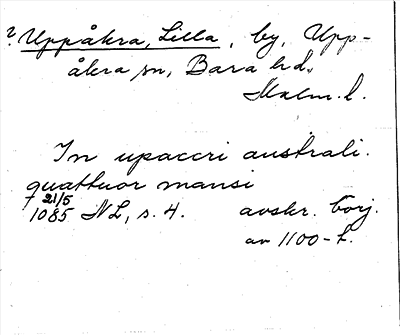 ? Uppåkra, Lilla, by, Upp-
åkra sn, Bara hd.,
Malm. l.
In upaccri australi.
quattuor mansi
21/5
1085 NL, s. 4. avskr. börj.
av 1100-t.